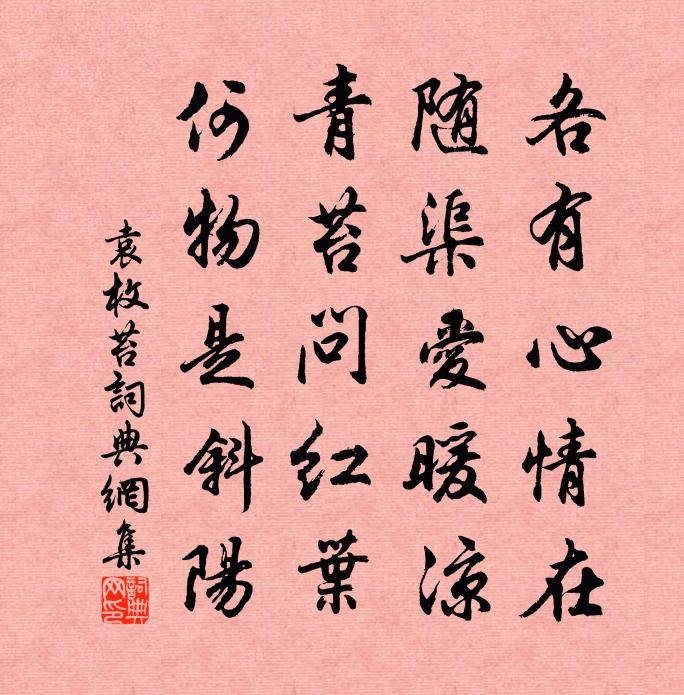 各有心情在
随渠愛暖涼
青苔問紅葉
何物是斜陽
袁枚苔詞典網集
詞典網印